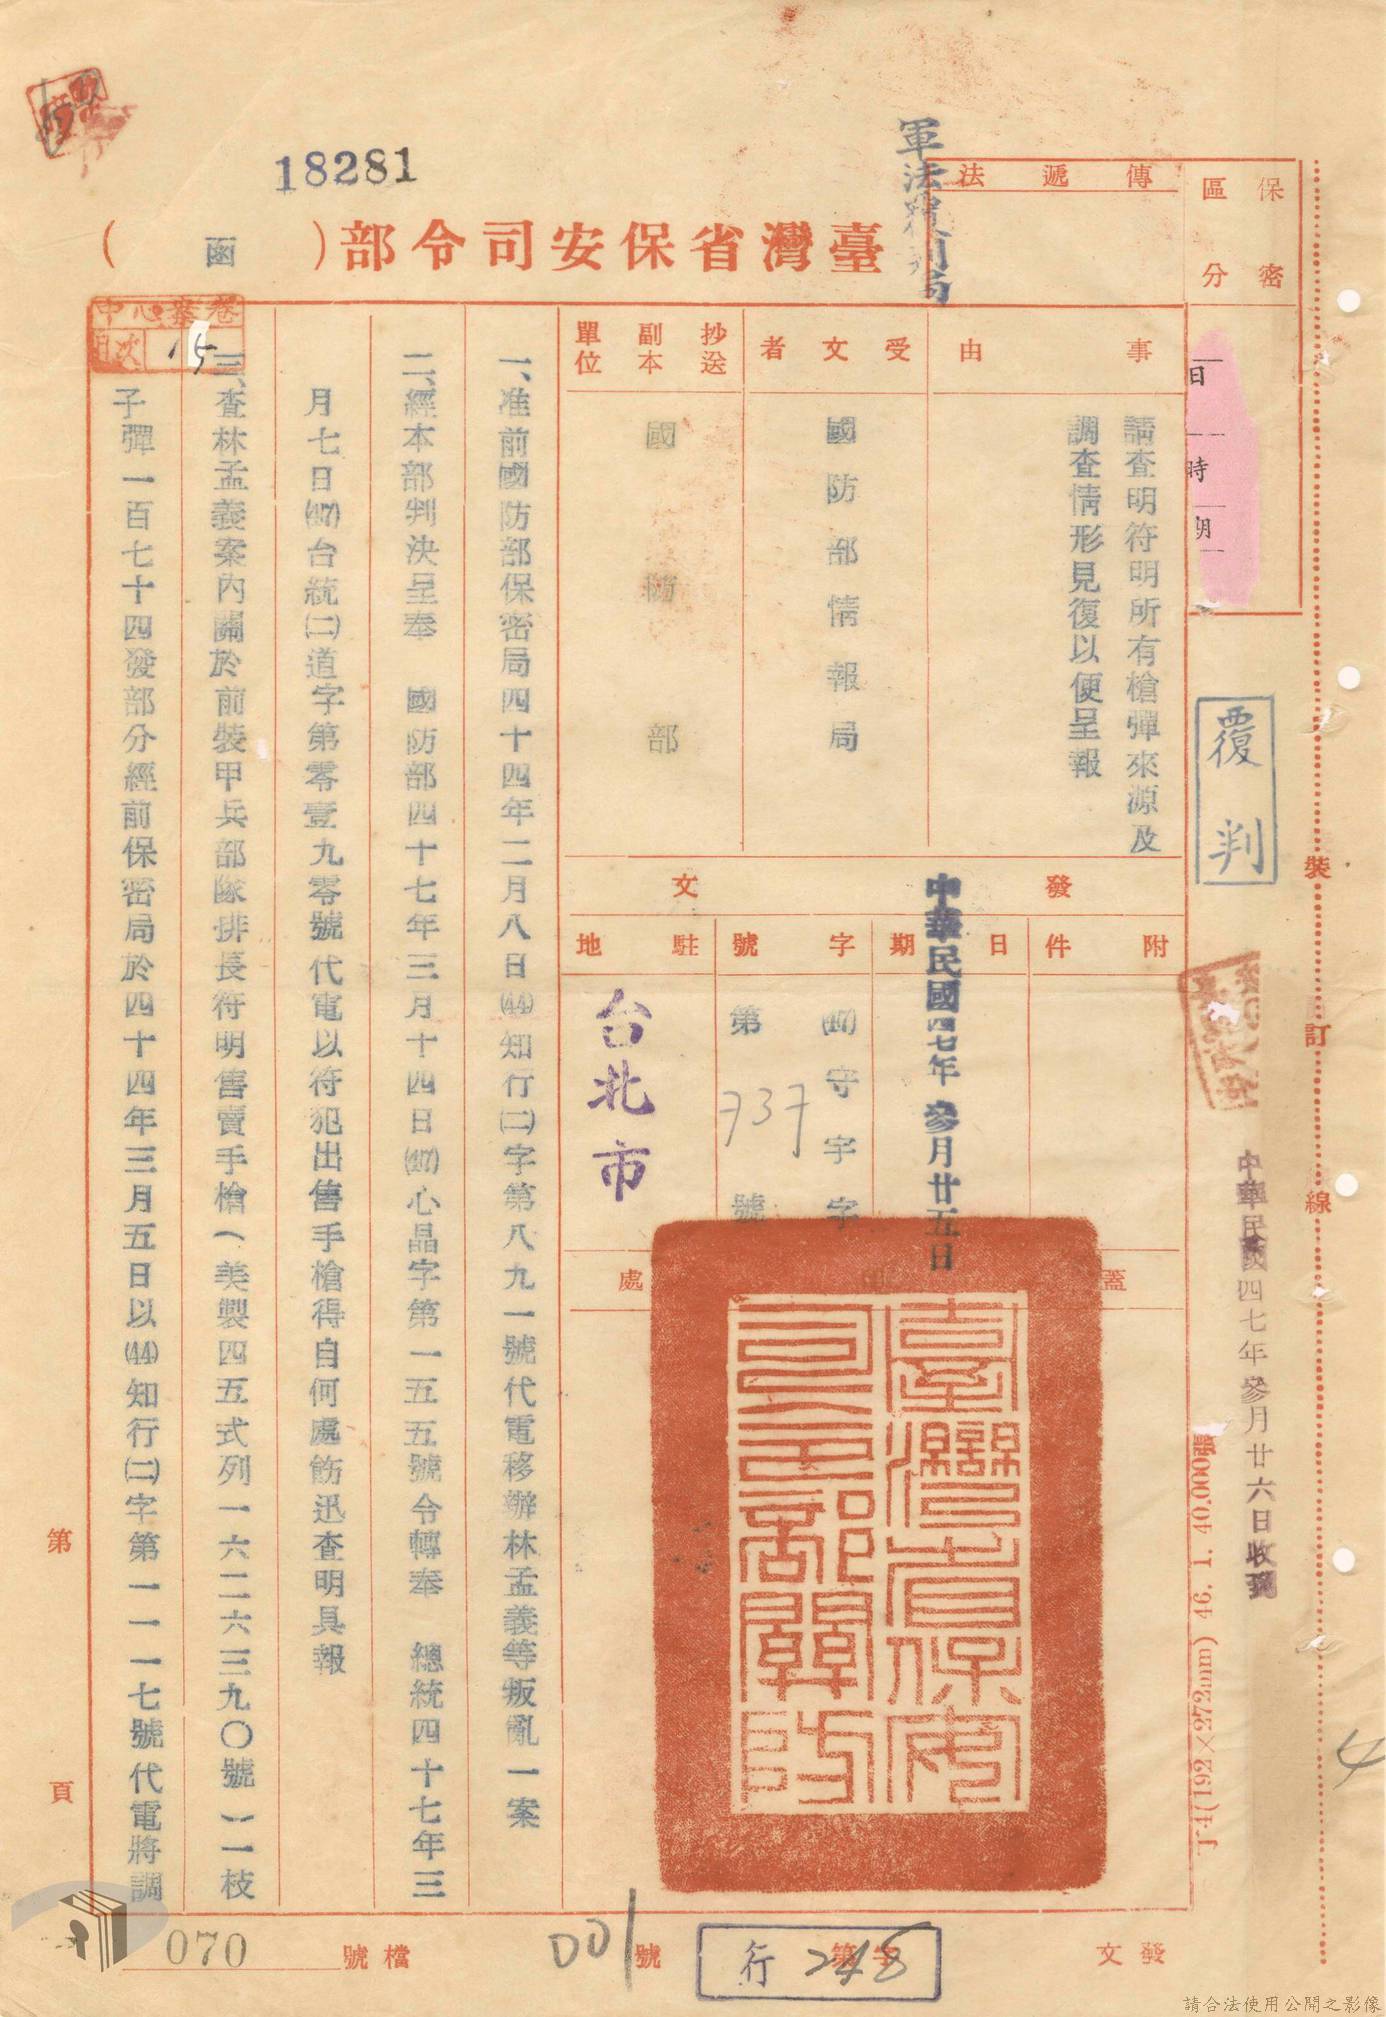 18281
軍法覆判局
臺灣省保安司令部(函)
保密
區分
傳遞法
日
時
期
事由
請查明符明所有槍彈來源及
調查情形見復以便呈報
受文者
國防部情報局
抄送副本單位
國防部
發文
附件
日期
中華民國四七年參月廿五日
字號
(47)守宇字
第737號
駐地
台北市
蓋
處
臺灣省保安
司令部關防
一、准前國防部保密局四十四年二月八日(44)知行(二)字第八九一號代電移辦林孟義等叛亂一案
二、經本部判決呈奉 國防部四十七年三月十四日(47)心晶字第一五五號令轉奉 總統四十七年三
月七日(47)台統(二)道字第零壹九零號代電以符犯出售手槍得自何處飭迅查明具報
三、查林孟義案內關於前裝甲兵部隊排長符明售賣手槍(美製四五式列一六二六三九〇號)一枝
子彈一百七十四發部分經前保密局於四十四年三月五日以(44)知行(二)字第一一一七號代電將調
卷
目次
15
覆判
中華民國四七年參月廿六日收到
裝
訂
線
(192×272mm) 46. 1. 40,000張
4
第
頁
發文
字第
號
行248
001
檔號
070
請合法使用公開之影像